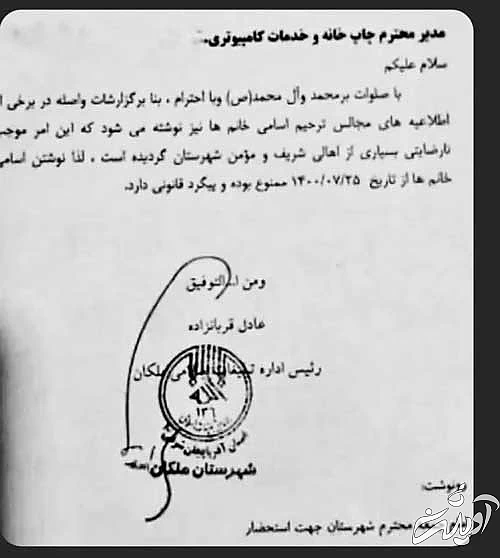 مدیر محترم چاپ خانه و خدمات کامپیوتری.
سلام علیکم
با صلوات برمحمد وآل محمد(ص) وبا احترام ، بنا برگزارشات واصله در برخی از
اطلاعیه های مجالس ترحیم اسامی خانم ها نیز نوشته می شود که این امر موجب
نارضایتی بسیاری از اهالی شریف و مؤمن شهرستان گردیده است ، لذا نوشتن اسامی
خانم ها از تاریخ ۱۴۰۰/۰۷/۲۵ ممنوع بوده و پیگرد قانونی دارد.
ومن التوفیق
عادل قربانزاده
رئیس اداره تبلیغات اسلامی ملکان
۱۳۶
استان آذربایجان شرقی
شهرستان ملکان
رونوشت:
محترم شهرستان جهت استحضار